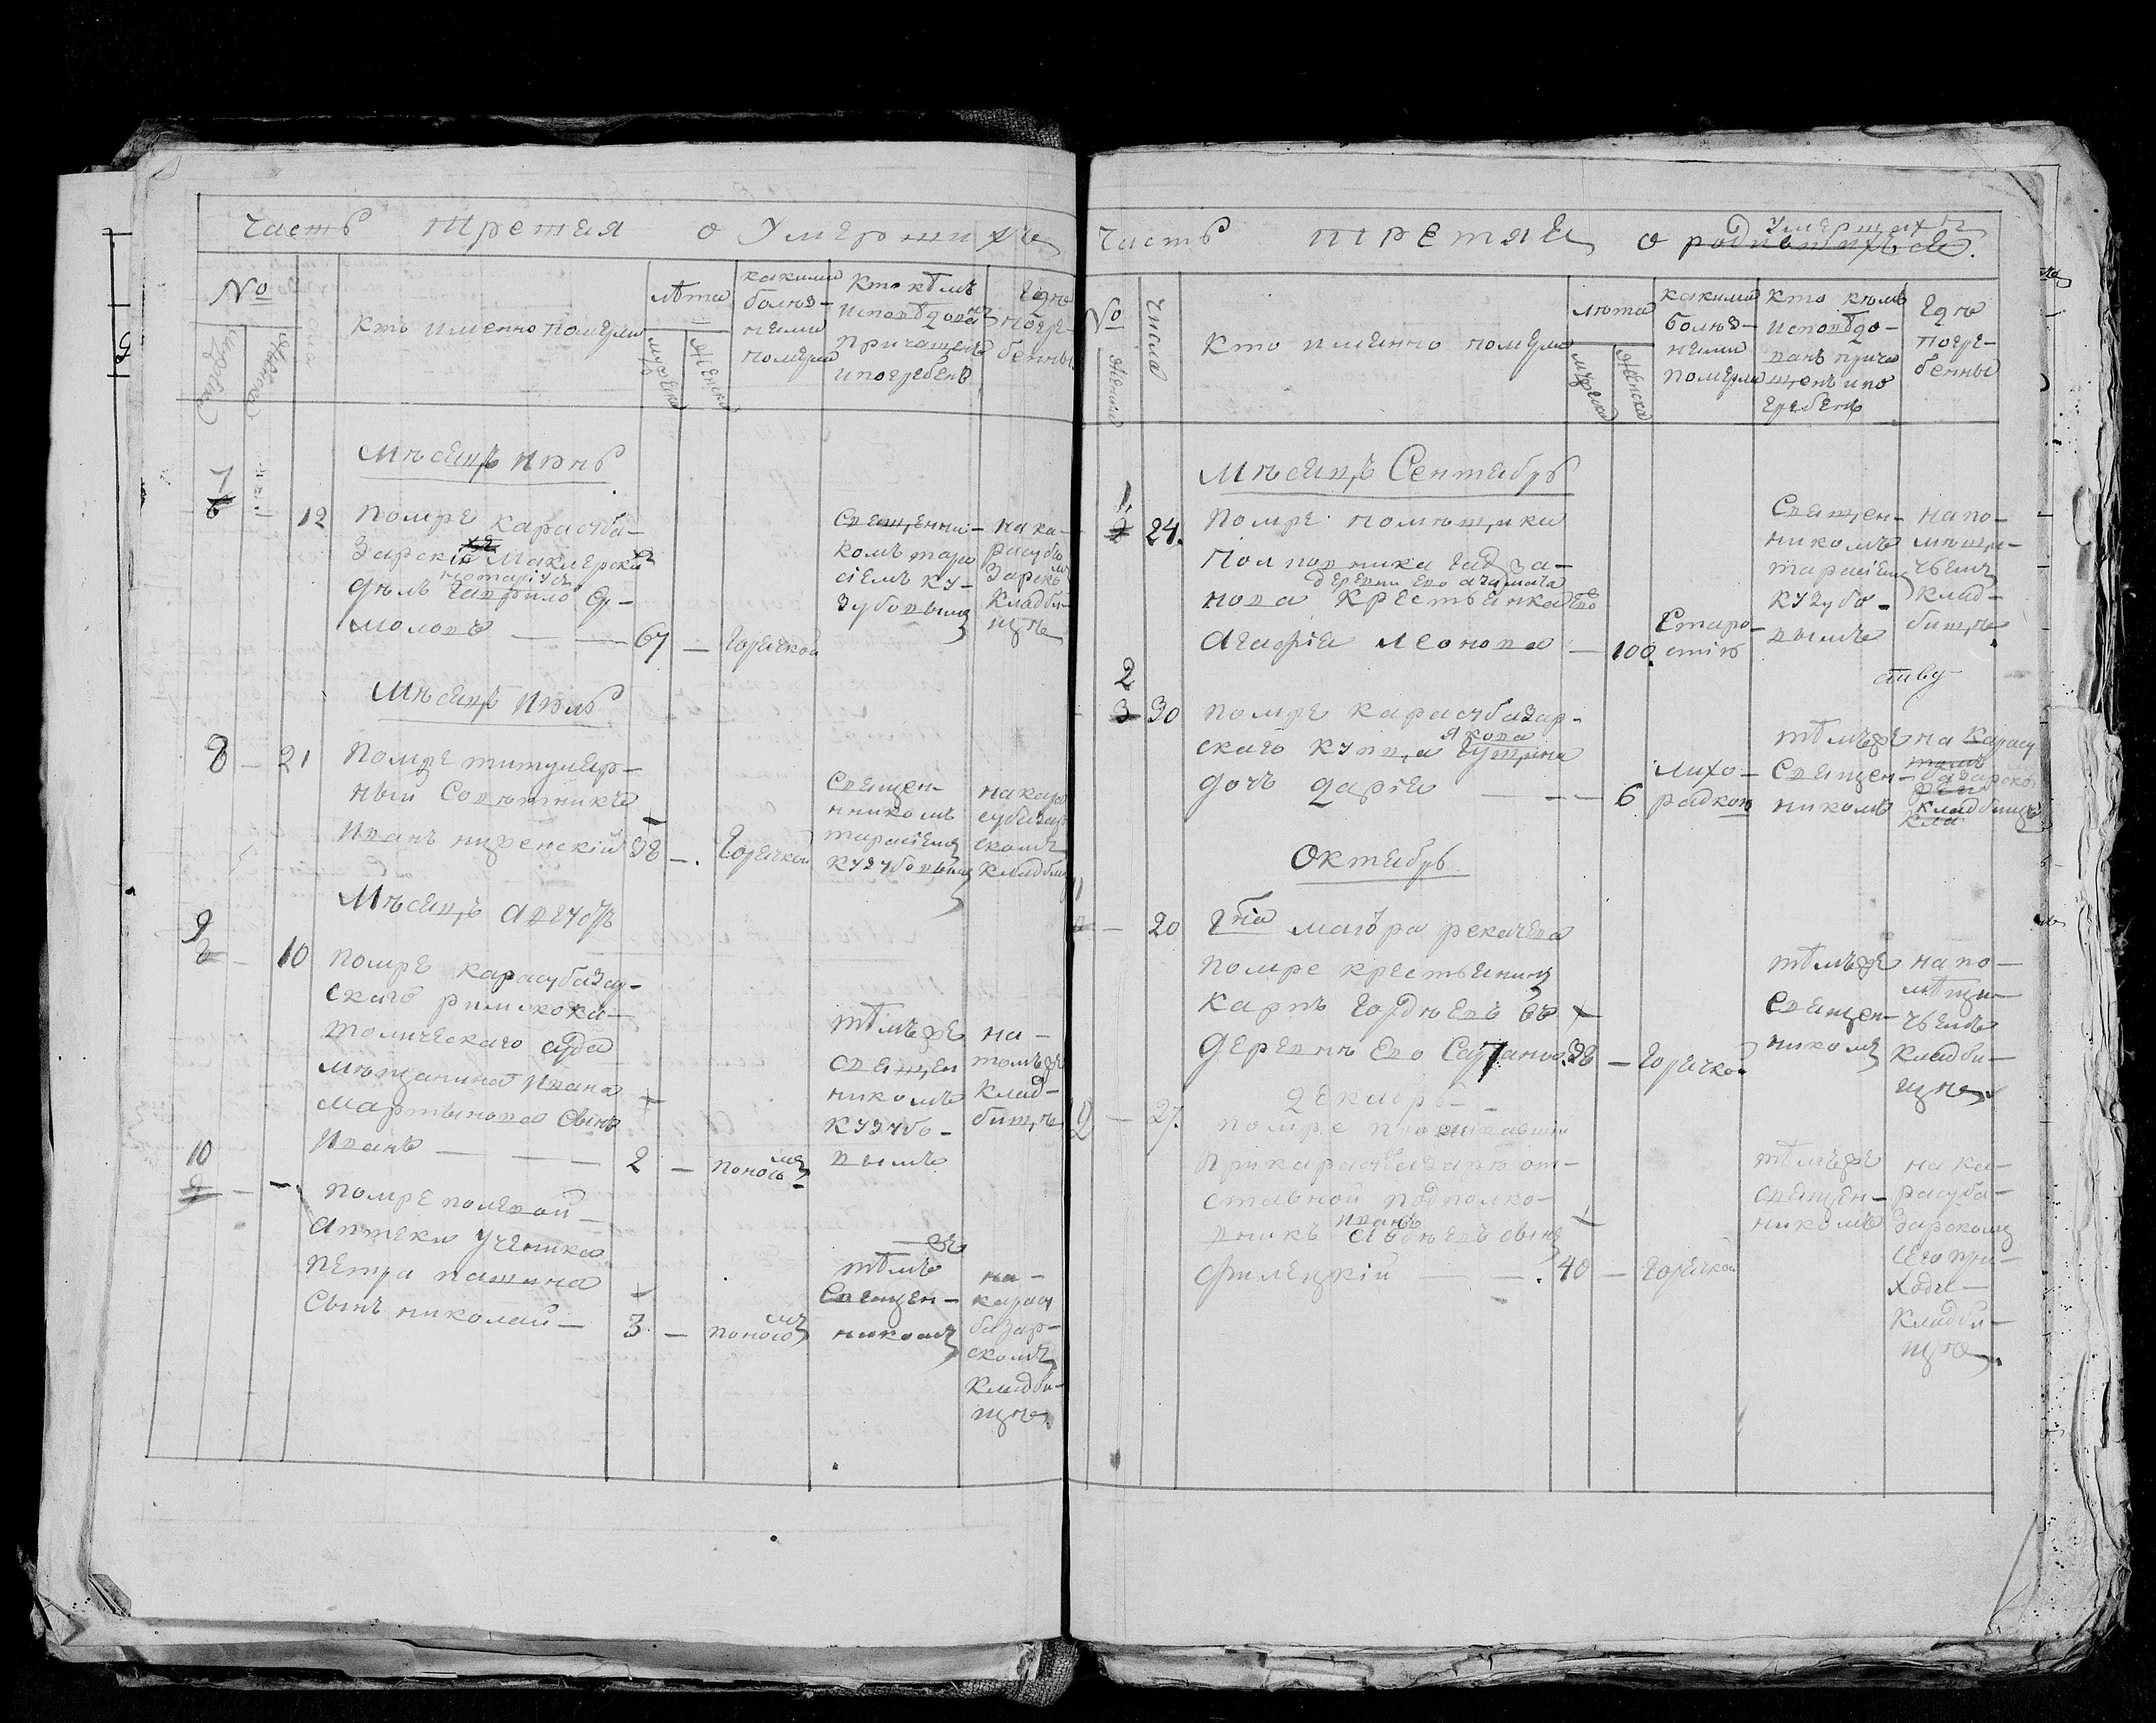 часть третая о Умершихъ
№
мужеска
женска
числа
Кто именно померли
лѣта
мужеска
женска
какими
болѣз-
нями
померли
Кто кѣмъ
исповѣдованъ
причащенъ
и погребенъ
Гдѣ
погре-
бенны
Мѣсяцъ Июнь
7
12
Помре карасуба-
зарскій Маклерскихъ
нотаріусъ
дѣлъ Гаврило Ер-
моловъ
67
—
Горячкой
Священни-
комъ тара
сіемъ Ку-
зубовымъ
на ка-
расуба
зарскомъ
кладби-
щѣ
Мѣсяцъ Июль
8
—
21
Помре титуляр-
ный Совѣтникъ
Иванъ
38
—
Горячкой
Священ-
никомъ
тарасіемъ
кузубовымъ
на кара
субазар
скомъ
кладби
Мѣсяцъ Август
9
—
10
Помре карасубазар-
скаго римскока-
толическаго
мѣщанина Ивана
Мартынова сынъ
Иванъ
2
—
поносомъ
тѣмъ же
священ
никомъ
кузубо-
вымъ
на-
томъ же
клад-
бищѣ
10
—
—
помре полевой
аптеки ученика
петра пашина
сынъ николай
3
—
поносомъ
тѣмъ же
Священ-
никомъ
на-
карасу
базар-
скомъ
кладби-
щѣ
Часть третая о родившихся. Умершихъ
№
женска
Числа
Кто именно померли
лѣта
мужеска
женска
какими
болѣз-
нями
померли
Кто кѣмъ
исповѣдо-
ванъ прича
щенъ и по
гребенъ
Гдѣ
погре-
бенны
Мѣсяцъ Сентябрь
1.
24.
помре помѣщика
Полковника
деревни его
нова крестьянка
Агафія леонова
—
100.
Старо-
стію
Священ-
никомъ
тарасіем
кузубо-
вымъ
на по-
мѣщи-
чьемъ
клад-
бищѣ
2
3
30
помре карасубазар-
скаго купца Якова
дочь дарія
—
6
лихо-
радкою
тѣмъ же
Священ-
никомъ
на карасу
базарско
кладбищѣ
Октябрь
—
20
Гна маіора рекачева
помре крестьянинъ
Карпъ Гордѣевъ въ
Деревнѣ его
38
—
Горячкой
тѣмъ же
священ-
никомъ
на по-
мѣщи-
чьемъ
кладби-
щѣ
Декабрь
—
27.
помре
при карасубазарѣ от-
ставной подполко-
вникъ Иванъ сынъ
Филецкій
40
—
Горячкой
тѣмъ же
священ-
никомъ
на ка-
расуба-
зарскомъ
его при-
хода
кладби-
щѣ